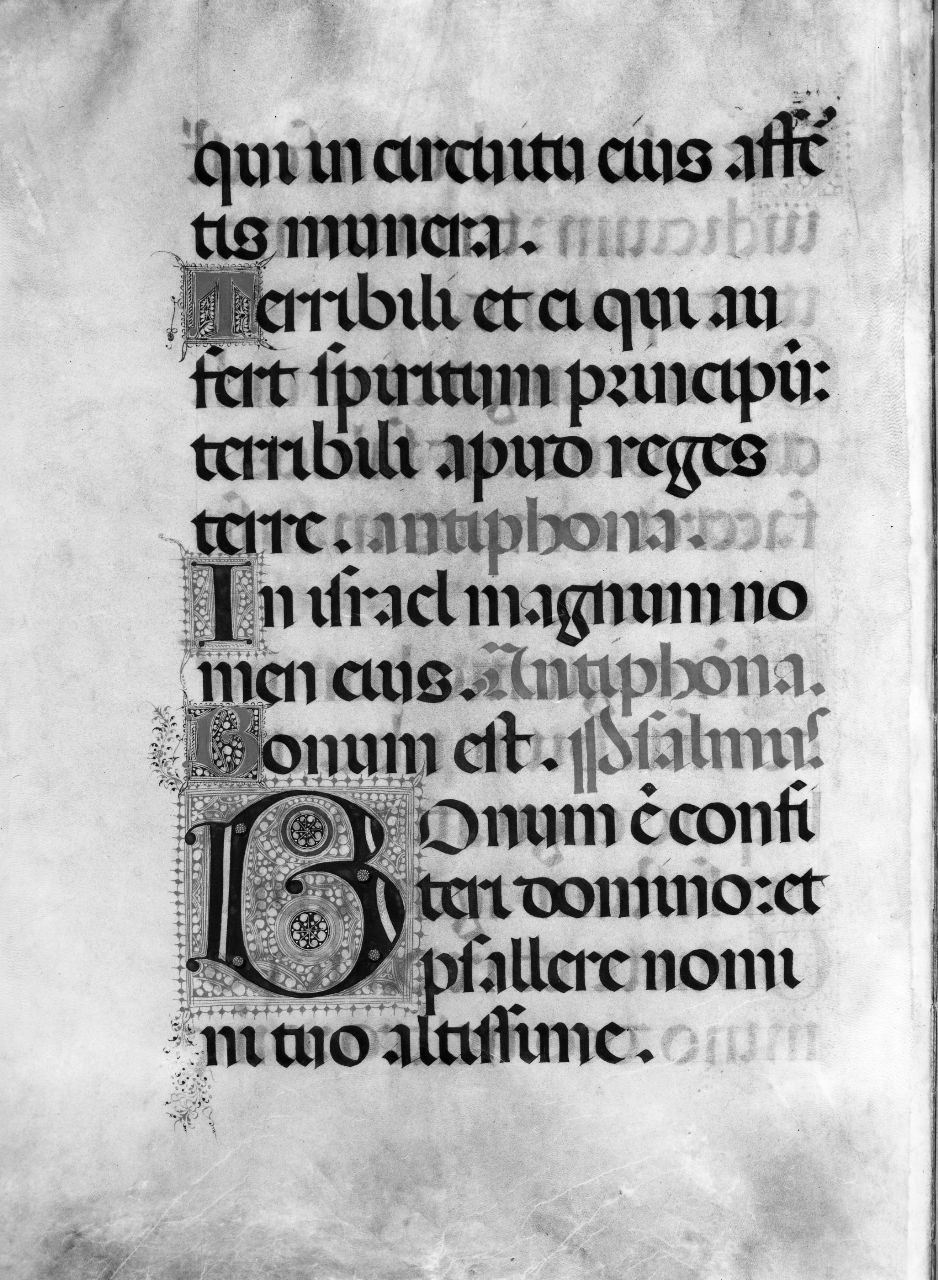 qui in circuitu eius affe᷑
tis munera.
Terribili et ei qui au
fert spiritum principu᷑:
terribili apud reges
terre. antiphona.
In israel magnum no
men eius. Antiphona.
Bonum est. Psalmus
BOnum e᷑ confi
teri domino: et
psallere nomi
ni tuo altissime.